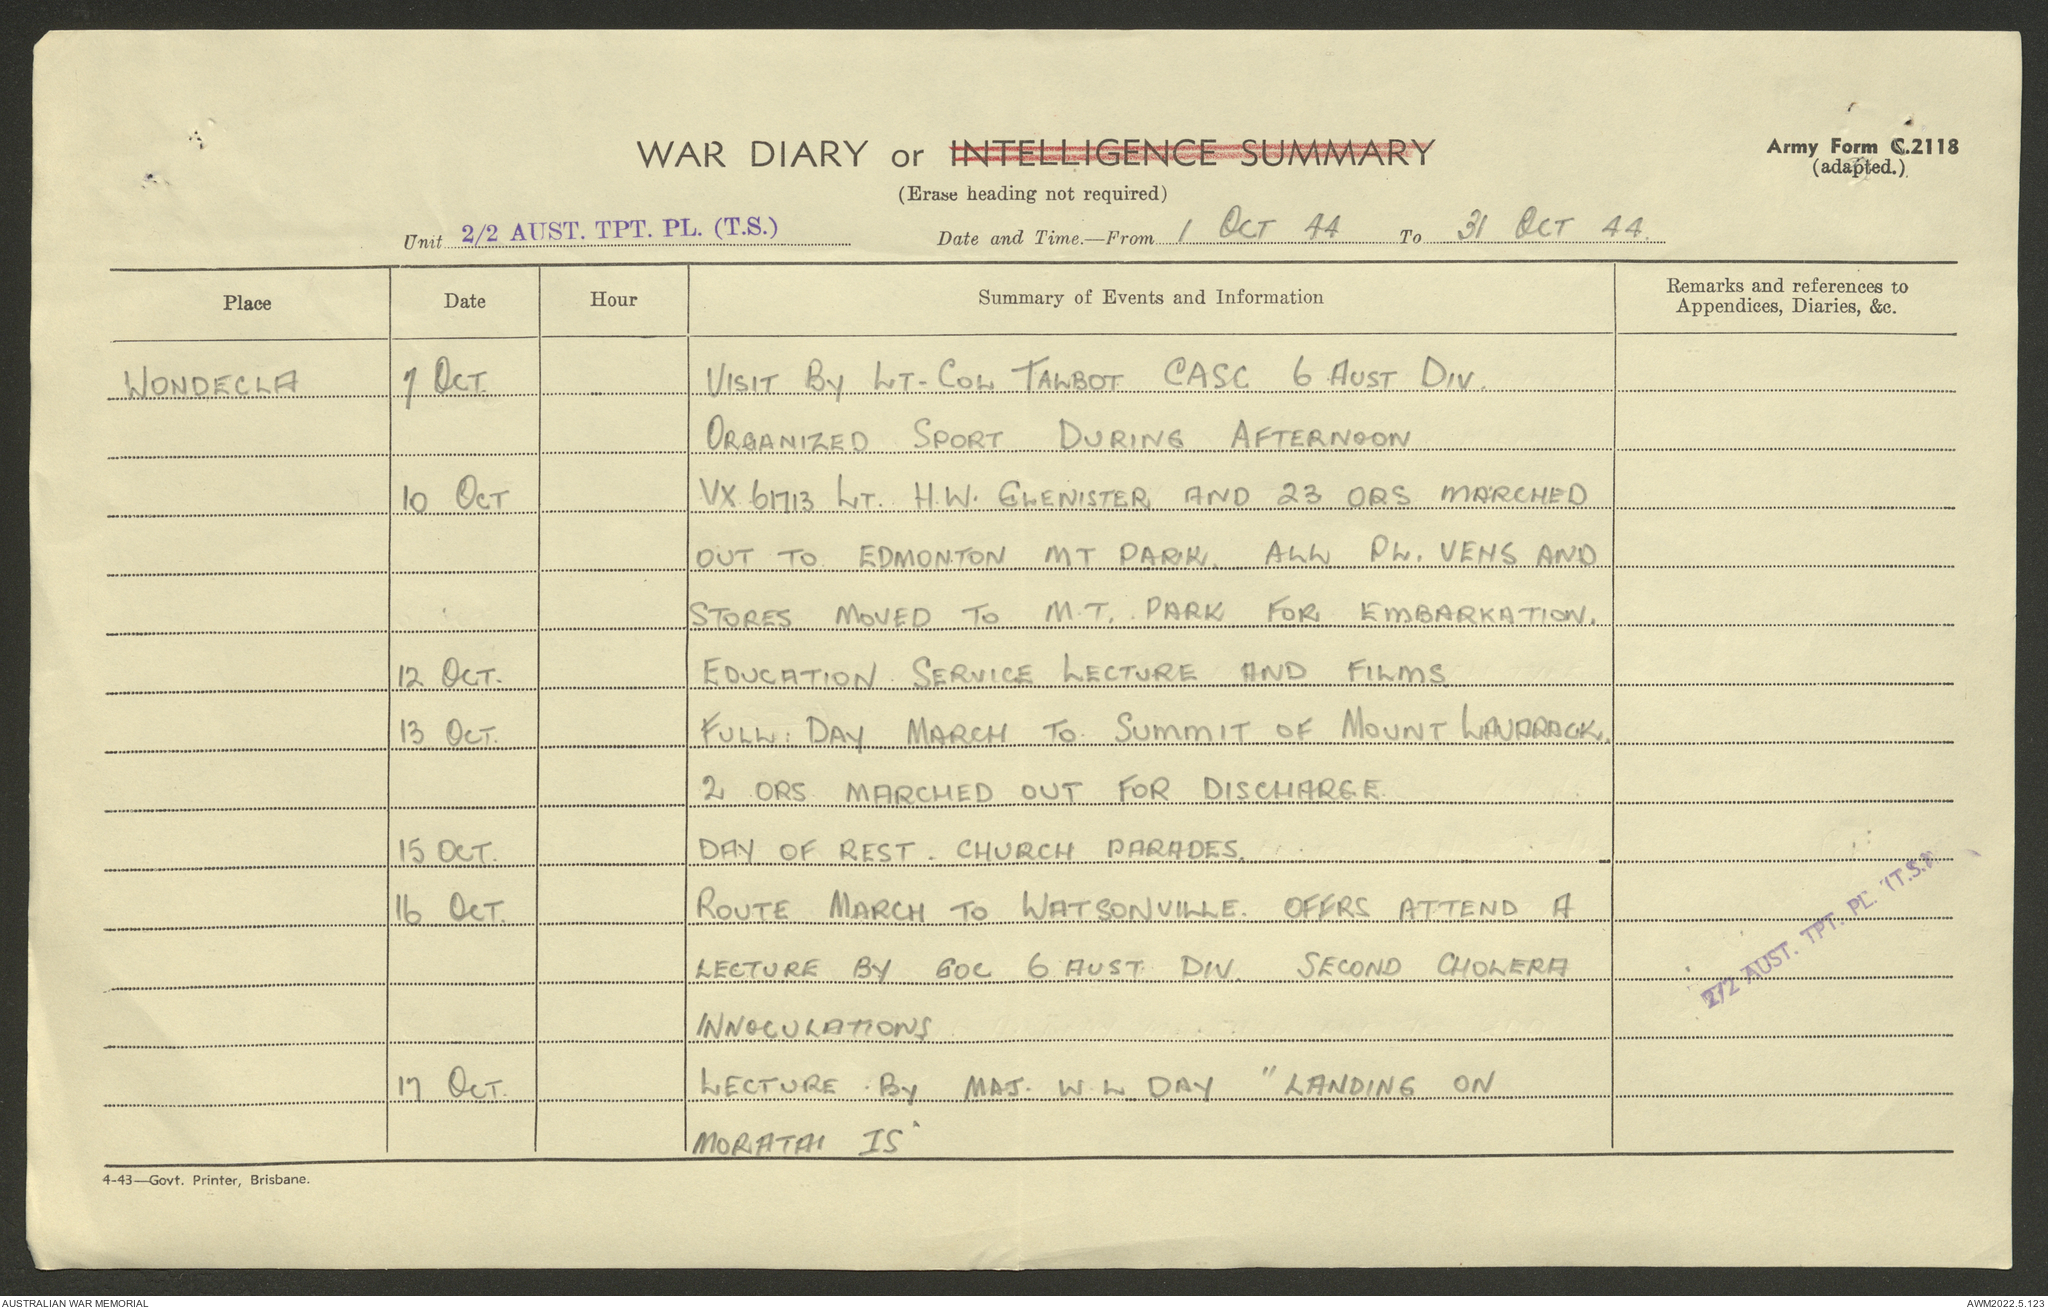 WAR DIARY or INTELLIGENCE SUMMARY
Army Form C.2118
(adapted.)
(Erase heading not required)
Unit 2/2 AUST. TPT. PL. (T.S.)
Date and Time.—From 1 OCT 44 To 31 OCT 44.
Place Date Hour Summary of Events and Information Remarks and references to
Appendices, Diaries, &c.
WONDECLA 7 OCT. VISIT BY LT-COL TALBOT CASC 6 AUST DIV.
ORGANIZED SPORT DURING AFTERNOON
10 OCT VX 61713 LT. H.W. GLENISTER AND 23 ORS MARCHED
OUT TO EDMONTON MT PARK. ALL PL. VEHS AND
STORES MOVED TO M.T. PARK FOR EMBARKATION.
12 OCT. EDUCATION SERVICE LECTURE AND FILMS
13 OCT. FULL DAY MARCH TO SUMMIT OF MOUNT
2 ORS MARCHED OUT FOR DISCHARGE
15 OCT. DAY OF REST. CHURCH PARADES.
16 OCT. ROUTE MARCH TO WATSONVILLE. OFFRS ATTEND A
LECTURE BY GOC 6 AUST DIV. SECOND CHOLERA
INNOCULATIONS
17 OCT. LECTURE BY MAJ. W.L. DAY "LANDING ON
MORATAI IS"
2/2 AUST. TPT. PL. (T.S.)
4-43—Govt. Printer, Brisbane.
AUSTRALIAN WAR MEMORIAL
AWM2022.5.123